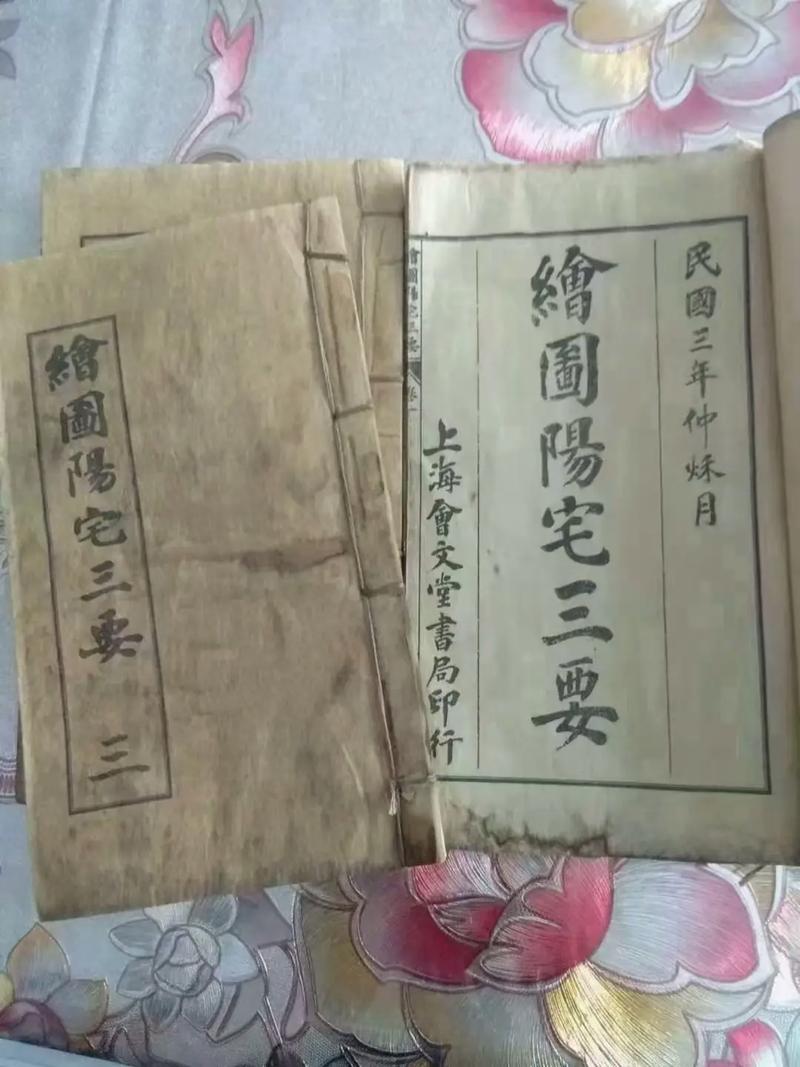 民國三年仲秌月
繪圖陽宅三要
上海會文堂書局印行
繪圖陽宅三要
卷一
繪圖陽宅三要 三